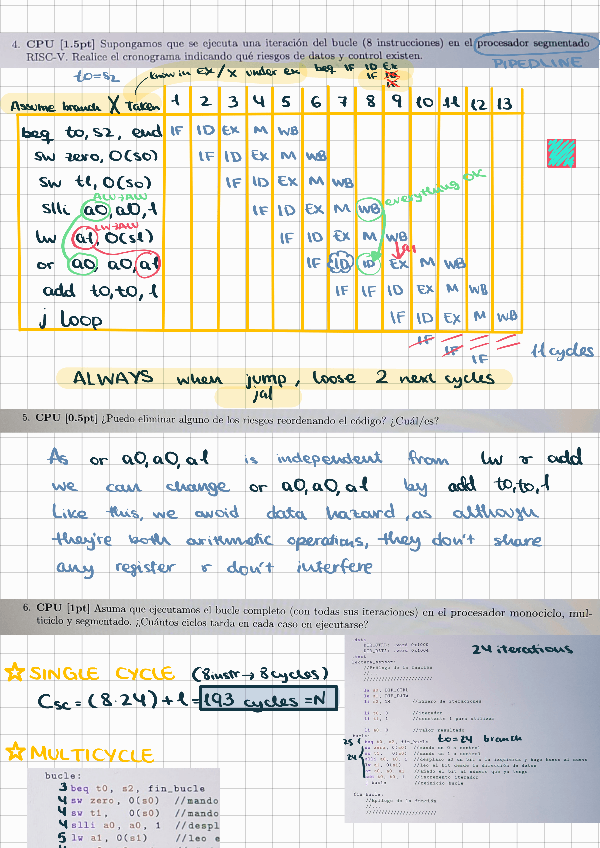 4. CPU [1.5pt] Supongamos que se ejecuta una iteración del bucle (8 instrucciones) en el procesador segmentado
RISC-V. Realice el cronograma indicando qué riesgos de datos y control existen.
PIPEDLINE
t0=s2
know in EX / X under ex beq IF ID EX
IF ID
IF
Assume branch X Taken 1 2 3 4 5 6 7 8 9 10 11 12 13
beq t0, s2, end IF ID EX M WB
sw zero, 0(s0) IF ID EX M WB
sw t1, 0(s0) IF ID EX M WB
ALU→ALU
slli a0, a0, 1 IF ID EX M WB everything OK
LW→ALU
lw a1, 0(s1) IF ID EX M WB
a1
or a0, a0, a1 IF ID ID EX M WB
add t0, t0, 1 IF IF ID EX M WB
j loop IF ID EX M WB
IF
IF
IF
11 cycles
ALWAYS when jump, loose 2 next cycles
jal
5. CPU [0.5pt] ¿Puedo eliminar alguno de los riesgos reordenando el código? ¿Cuál/os?
As or a0, a0, a1 is independent from lw r add
we can change or a0, a0, a1 by add t0, t0, 1
Like this, we avoid data hazard, as although
they're both arithmetic operations, they don't share
any register r don't interfere
6. CPU [1pt] Asuma que ejecutamos el bucle completo (con todas sus iteraciones) en el procesador monociclo, mul-
ticiclo y segmentado. ¿Cuántos ciclos tarda en cada caso en ejecutarse?
24 iterations
SINGLE CYCLE (8 instr → 8 cycles)
Csc = (8·24) + 1 = 193 cycles = N
t0=24 branch
25
24
MULTICYCLE
bucle:
3 beq t0, s2, fin_bucle
4 sw zero, 0(s0) //mando
4 sw t1, 0(s0) //mando
4 slli a0, a0, 1 //despl
5 lw a1, 0(s1) //leo e